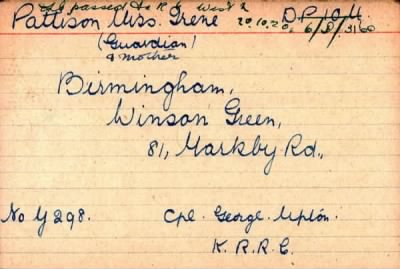 passed to R.O. West 2
Pattison Miss. Irene 20.10.20. D.P. 10.M.
(Guardian) 6/D/3160
& Mother
Birmingham,
Winson Green,
81, Markby Rd.,
No Y298. Cpl. George Upton.
K.R.R.C.